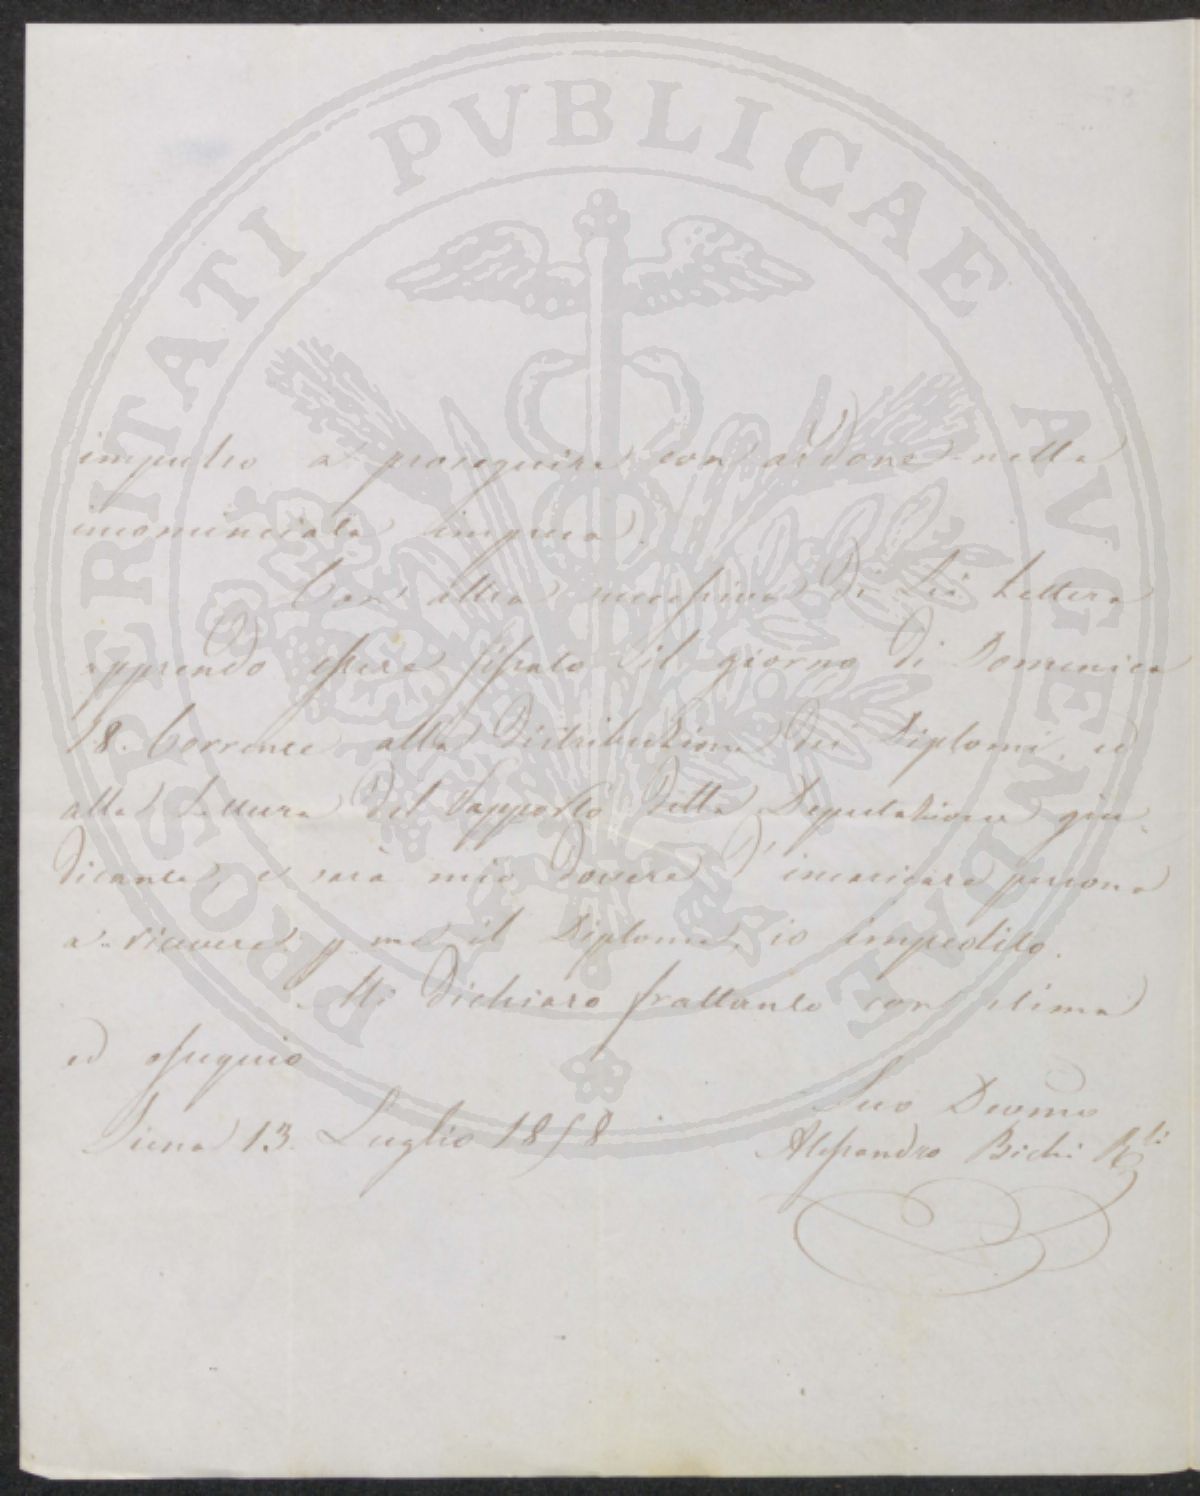 PROSPERITATI PVBLICAE AVGENDAE
impulso a proseguire con ardore nella
incominciata impresa.
Con altra di Lei Lettera
apprendo essere fissato il giorno di Domenica
18. Corrente alla distribuzione dei Diplomi, ed
alla Lettura del Rapporto della Deputazione giu-
dicante, e sarà mio dovere d'incaricare persona
a ricevere p me il Diploma, io impedito.
Mi dichiaro frattanto con stima
ed ossequio
Siena 13. Luglio 1858
Suo Devmo
Alessandro Bichi R